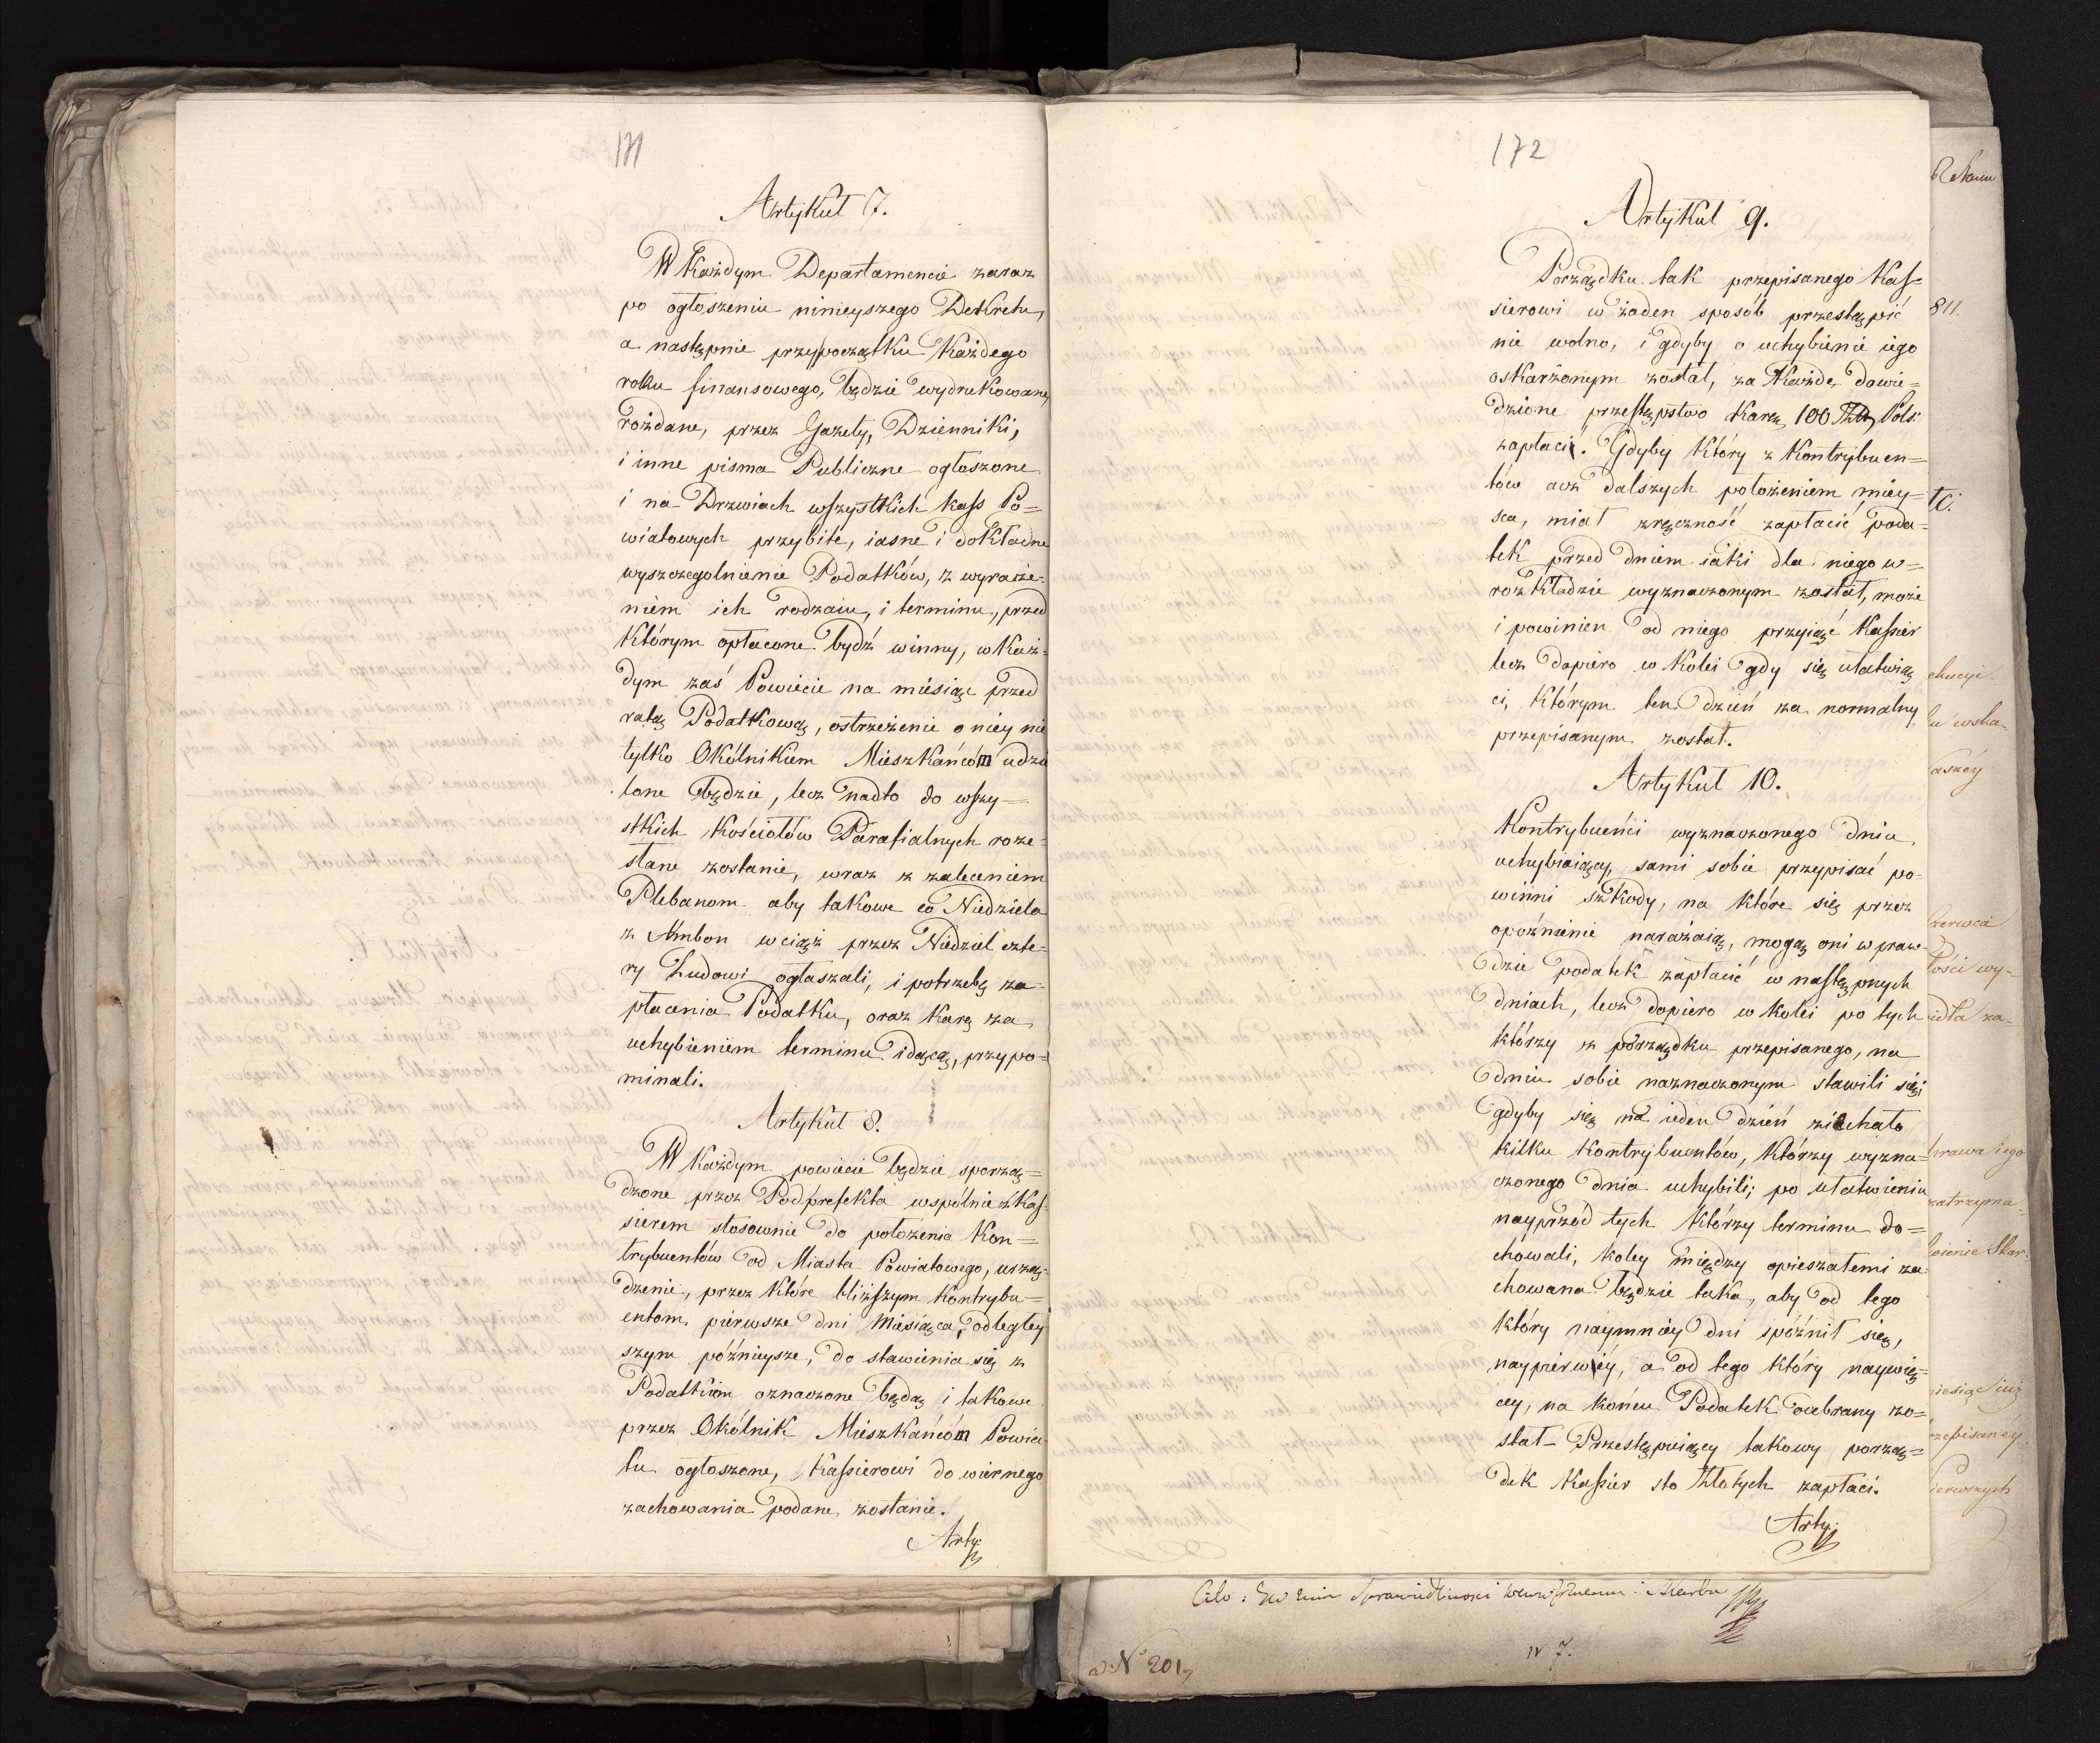 171
Artykuł 7.
W Każdym Departamencie zaraz
po ogłoszeniu ninieyszego Dekretu,
a następnie przy początku Każdego
roku finansowego, będzie wydrukowane,
rozdane, przez Gazety, Dzienniki,
i inne pisma Publiczne ogłoszone
i na Drzwiach wszystkich kass Po=
wiatowych przybite, iasne i dokładne
wyszczegolnienie Podatków, z wyraże=
niem ich rodzaiu, i terminu, przed
Którym opłacone bydź winny, w Każ=
dym zaś Powiecie na miesiąc przed
ratą Podatkową, ostrzeżenie o niey nie
tylko Okólnikiem Mieszkańcóm udzie
lone będzie, lecz nadto do wszy=
stkich Kościołów Parafialnych roze=
słane zostanie, wraz z zaleceniem
Plebanom aby takowe co Niedziela
z Ambon wciąż przez Niedziel czte=
ry Ludowi ogłaszali, i potrzebę za=
płacenia Podatku, oraz Karę za
uchybieniem terminu idącą, przypo=
minali.
Artykuł 8.
W Każdym powiecie będzie sporzą=
dzone przez Podprefekta wspólnie z Kas=
sierem stosownie do położenia Kon=
trybuentów od Miasta Powiatowego, urzą=
dzenie, przez Które bliższym Kontrybu=
entom, pierwsze dni Miesiąca, odległey
szym późnieysze, do stawienia się z
Podatkiem oznaczone będą i takowe
przez Okólnik Mieszkańcóm Powia
tu ogłoszone, Kassierowi do wiernego
zachowania podane, zostanie.
Arty:
172
Artykuł 9.
Porządku tak przepisanego Kas=
sierowi w żaden sposób przestąpić
nie wolno, i gdyby o uchybienie iego
oskarżonym został, za Każde dowie=
dzione przestępstwo Karę 100 Pols:
zapłaci. Gdyby Który z Kontrybuen=
tów acz dalszych położeniem miey=
sca, miał zręczność zapłacić poda=
tek przed dniem iaki dla niego w=
rozkładzie wyznaczonym został, może
i powinien od niego przyiąć Kassier
lecz dopiero w Kolei gdy się ułatwią
ci, Którym ten dzień za normalny
przepisanym został.
Artykuł 10.
Kontrybuenci wyznaczonego dnia
uchybiaiący, sami sobie przypisać po=
winni szkody, na które się przez
opóźnienie narażaią, mogą oni w praw=
dzie podatek zapłacić w następnych
dniach, lecz dopiero w Kolei po tych
którzy z porządku przepisanego, na
dniu sobie naznaczonym stawili się;
gdyby się na ieden dzień ziechało
kilku Kontrybuentów, Którzy wyzna=
czonego dnia uchybili; po ułatwieniu
nayprzód tych Którzy terminu do=
chowali, koley między opieszałemi za
chowana będzie taka, aby od tego
który naymniey dni spóźnił się,
naypierwéy, a od tego który naywię=
cey, na końcu Podatek odebrany zo=
stał_ Przestępuiący takowy porzą=
dek Kassier sto Złotych zapłaci.
Arty:
811.
Tc.
ekucyi
czerwca
tości wy=
idła za=
prawa iego
zatrzyma=
wienie Skar=
miesiąc iuż
rzepisanéy
ierwszych
ad No 201,
N 7.